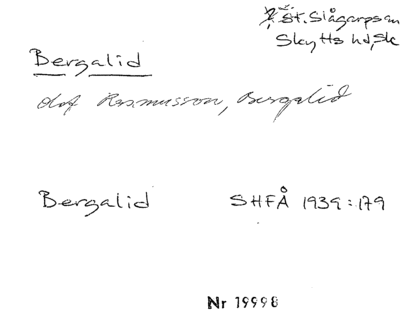 St. Slågarps sn
Skytts hd, Sk
Bergalid
Olof Rasmusson, Bergalid
Bergalid SHFÅ 1939:179
Nr 19998